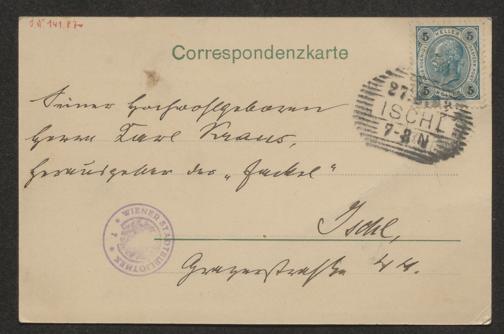 IN 141.87
Correspondenzkarte
5 KELLER 5
5 5
27
ISCHL
7-8 N
Seiner Hochwohlgeboren
Herrn Karl Kraus,
Herausgeber der „Fackel“
Ischl,
Grazerstraße 44.
* WIENER STADTBIBLIOTHEK *